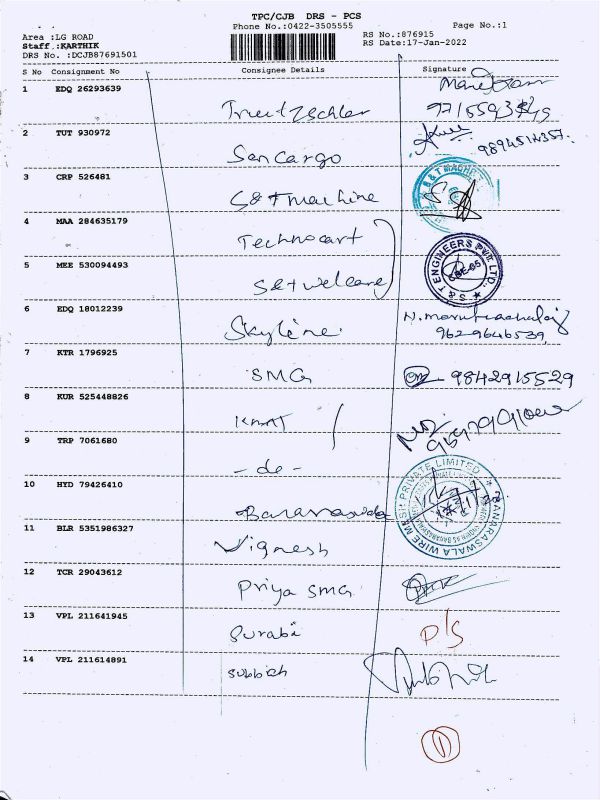 TPC/CJB DRS - PCS
Phone No.:0422-3505555
Page No.:1
Area :LG ROAD
Staff :KARTHIK
DRS No. :DCJB87691501
RS No.:876915
RS Date:17-Jan-2022
S No Consignment No Consignee Details Signature
1 EDQ 26293639
Truetzschler
2 TUT 930972
San Cargo 9894514357.
3 CRP 526481
S & T machine
4 MAA 284635179
Technocart
5 MEE 530094493
S & T welcare
S & T ENGINEERS PVT LTD.
6 EDQ 18012239
Skyline.
9629646539
7 KTR 1796925
SMG 9842915529
8 KUR 525448826
KMAT
9 TRP 7061680
- do -
10 HYD 79426410
Banaraswala
BANARASWALA WIRE MESH PRIVATE LIMITED
11 BLR 5351986327
Vignesh
12 TCR 29043612
Priya SMG
13 VPL 211641945
Surabi D/S
14 VPL 211614891
Subbiah
1